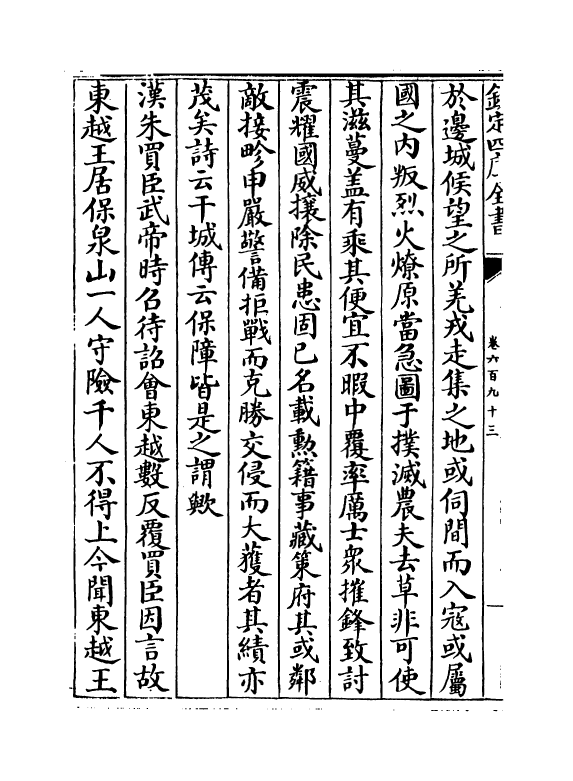 欽定四庫全書
卷六百九十三
於邊城候望之所羌戎走集之地或伺間而入寇或屬
國之內叛烈火燎原當急圖于撲滅農夫去草非可使
其滋蔓盖有乘其便宜不暇中覆率厲士衆摧鋒致討
震耀國威攘除民患固已名載勲籍事藏策府其或鄰
敵接畛申嚴警備拒戰而克勝交侵而大獲者其績亦
茂矣詩云干城傳云保障皆是之謂歟
漢朱買臣武帝時召待詔會東越數反覆買臣因言故
東越王居保泉山一人守險千人不得上今聞東越王